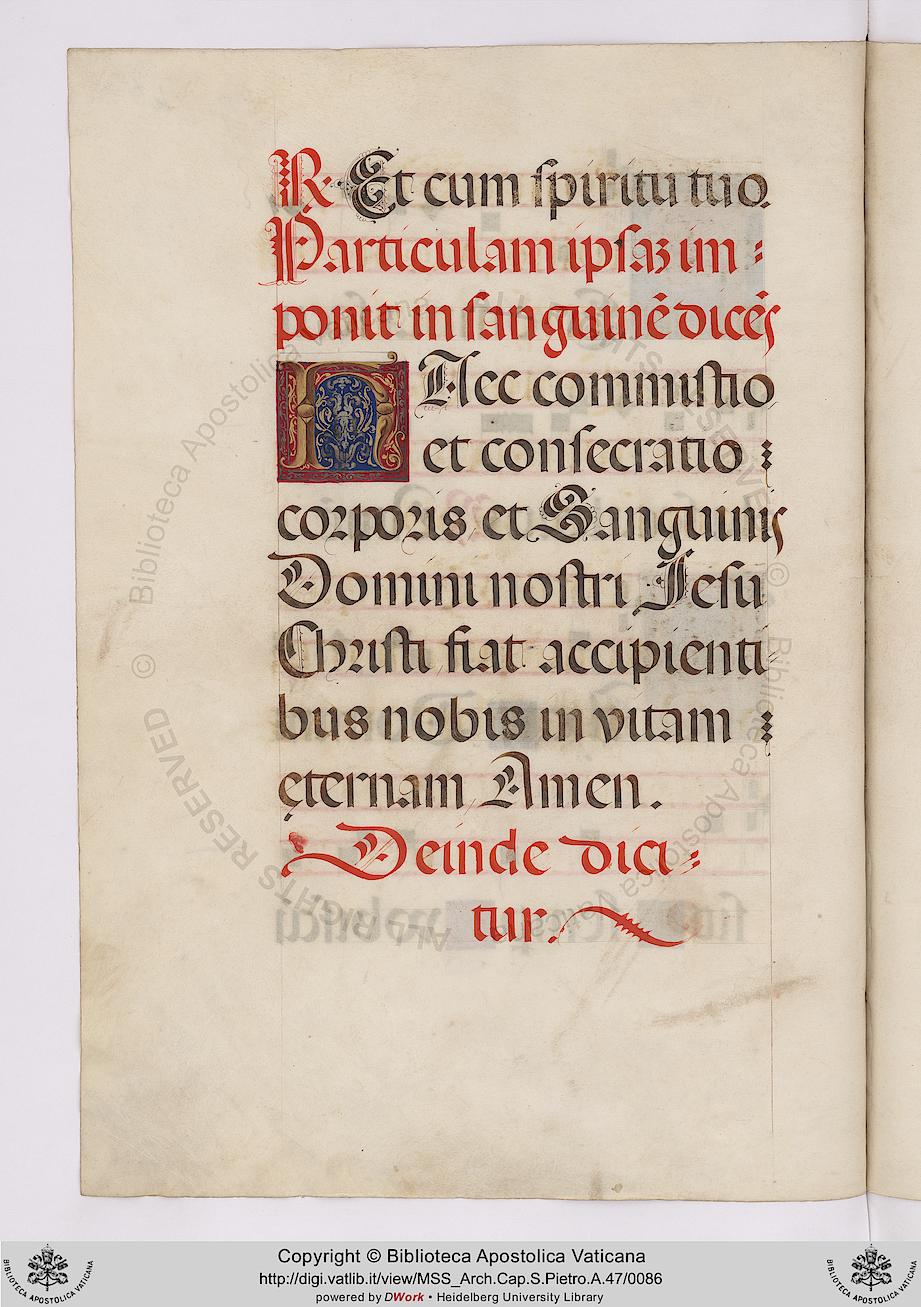 R. Et cum spiritu tuo.
Particulam ipsaʒ im⸗
ponit in sanguinē dicēs
HAec commistio
et consecratio
corporis et Sanguinis
Domini nostri Jesu
Christi fiat accipienti⸗
bus nobis in vitam
ęternam Amen.
Deinde dici⸗
tur.
Copyright © Biblioteca Apostolica Vaticana
http://digi.vatlib.it/view/MSS_Arch.Cap.S.Pietro.A.47/0086
powered by DWork • Heidelberg University Library
BIBLIOTECA APOSTOLICA VATICANA
BIBLIOTECA APOSTOLICA VATICANA
© Biblioteca Apostolica Vaticana ALL RIGHTS RESERVED
© Biblioteca Apostolica Vaticana ALL RIGHTS RESERVED